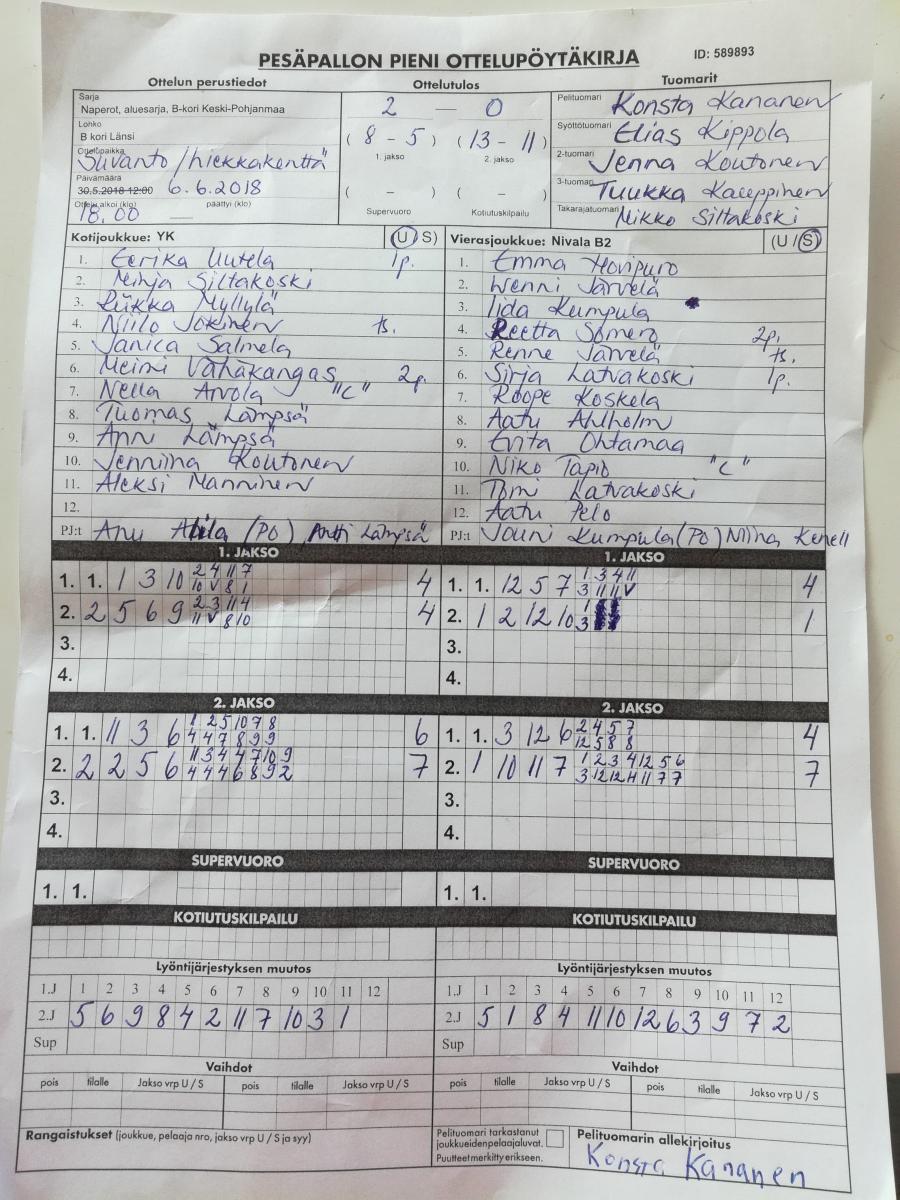 PESÄPALLON PIENI OTTELUPÖYTÄKIRJA ID: 589893
Ottelun perustiedot Ottelutulos Tuomarit
Sarja
Naperot, aluesarja, B-kori Keski-Pohjanmaa
Lohko
B kori Länsi
Ottelupaikka
Suvanto/hiekkakenttä
Päivämäärä
30.5.2018 12:00 6.6.2018
Ottelu alkoi (klo) päättyi (klo)
18.00
2 — 0
( 8 - 5 ) ( 13 - 11 )
1. jakso 2. jakso
( - ) ( - )
Supervuoro Kotiutuskilpailu
Pelituomari Konsta Kananen
Syöttötuomari Elias Kippola
2-tuomari Jenna Koutonen
3-tuomari Tuukka Kauppinen
Takarajatuomari Mikko Siltakoski
Kotijoukkue: YK (U/S)
1. Eerika Uutela 1p.
2. Minja Siltakoski
3. Riikka Myllylä
4. Niilo Jokinen ts.
5. Janica Salmela
6. Meimi Vähäkangas 2p.
7. Nella Arvola "C"
8. Tuomas Lämpsä
9. Anni Lämpsä
10. Jenniina Koutonen
11. Aleksi Manninen
12.
PJ:t Anu (PO) Antti Lämpsä
Vierasjoukkue: Nivala B2 (U/S)
1. Emma Hovipuro
2. Wenni Järvelä
3. Iida Kumpula
4. Reetta Somero 2p.
5. Renne Järvelä ts.
6. Sirja Latvakoski 1p.
7. Roope Koskela
8. Aatu Ahlholm
9. Enita Ohtamaa
10. Niko Tapio "C"
11. Tomi Latvakoski
12. Aatu Pelo
PJ:t Jouni Kumpula (PO) Niina Kenell
1. JAKSO
1. 1. 1 3 10 2 4 11 7 4
10 V 8 1
2. 2 5 6 9 2 3 11 4 4
11 V 8 10
3.
4.
1. JAKSO
1. 1. 12 5 7 1 3 4 11 4
3 11 11 V
2. 1 2 12 10 1 1
3
3.
4.
2. JAKSO
1. 1. 11 3 6 1 2 5 10 7 8 6
4 4 7 8 9 9
2. 2 2 5 6 11 3 4 4 7 10 9 7
4 4 4 6 8 9 2
3.
4.
2. JAKSO
1. 1. 3 12 6 2 4 5 7 4
12 5 8 8
2. 1 10 11 7 1 2 3 4 12 5 6 7
3 12 12 11 11 7 7
3.
4.
SUPERVUORO SUPERVUORO
1. 1. 1. 1.
KOTIUTUSKILPAILU KOTIUTUSKILPAILU
Lyöntijärjestyksen muutos Lyöntijärjestyksen muutos
1.J 1 2 3 4 5 6 7 8 9 10 11 12 1.J 1 2 3 4 5 6 7 8 9 10 11 12
2.J 5 6 9 8 4 2 11 7 10 3 1 2.J 5 1 8 4 11 10 12 6 3 9 7 2
Sup Sup
Vaihdot Vaihdot
pois tilalle Jakso vrp U / S pois tilalle Jakso vrp U / S pois tilalle Jakso vrp U / S pois tilalle Jakso vrp U / S
Rangaistukset (joukkue, pelaaja nro, jakso vrp U / S ja syy)
Pelituomari tarkastanut
joukkueiden pelaajaluvat.
Puutteet merkitty erikseen.
Pelituomarin allekirjoitus
Konsta Kananen